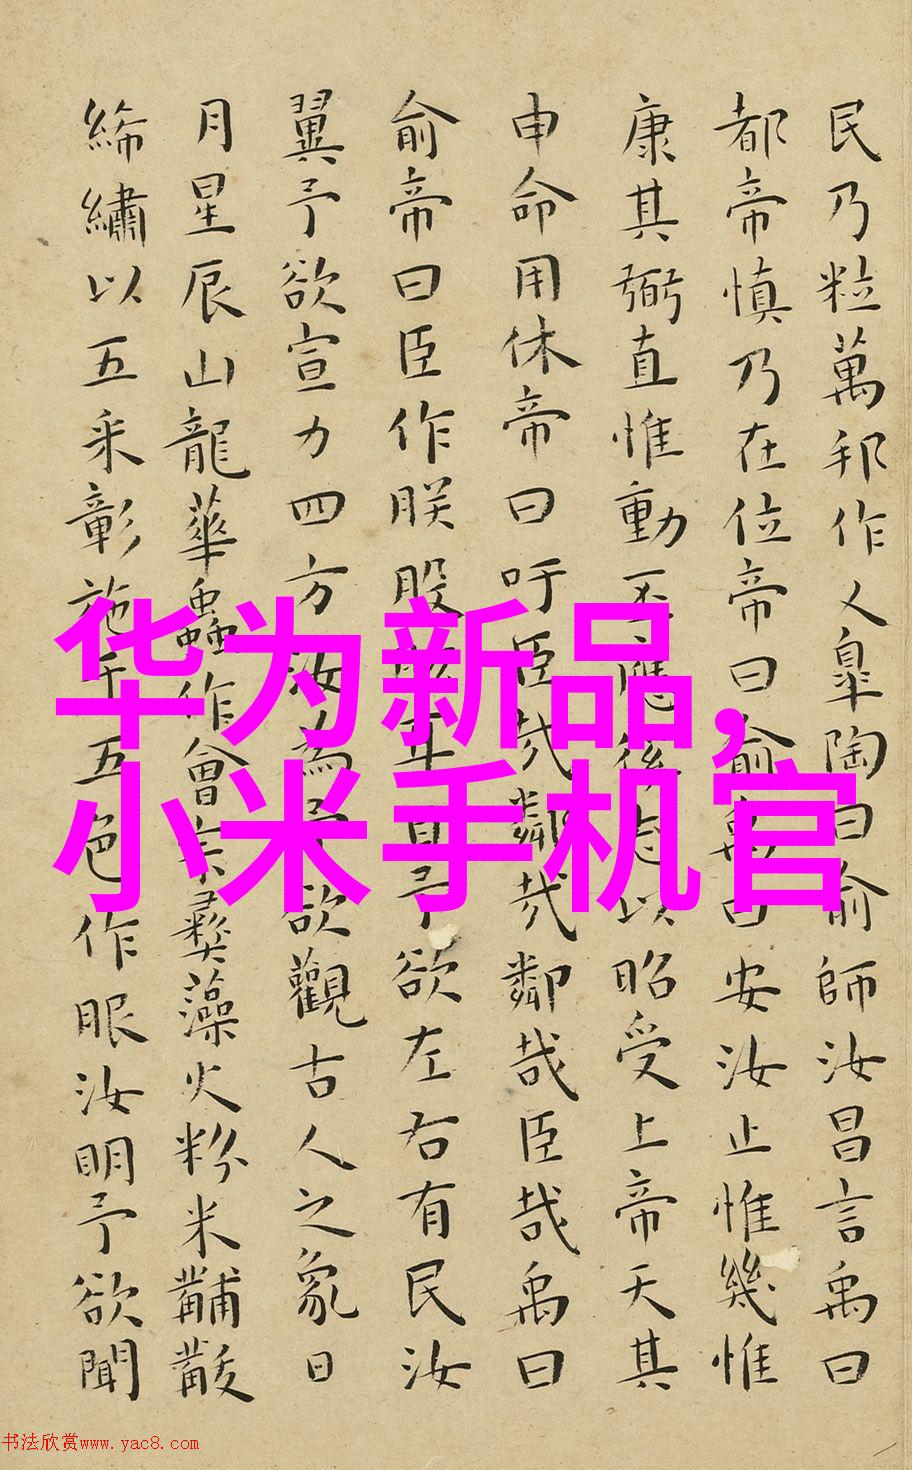 民乃粒萬邦作乂皐陶曰俞師汝昌言禹曰
都帝慎乃在位帝曰俞禹曰安汝止惟幾惟
康其弼直惟動丕應徯志以昭受上帝天其
申命用休帝曰吁臣哉鄰哉鄰哉臣哉禹曰
俞帝曰臣作朕股肱耳目予欲左右有民汝
翼予欲宣力四方汝為予欲觀古人之象日
月星辰山龍華蟲作會宗彝藻火粉米黼黻
絺繡以五采彰施于五色作服汝明予欲聞
华为新品,
小米手机官
书法欣赏www.yac8.com